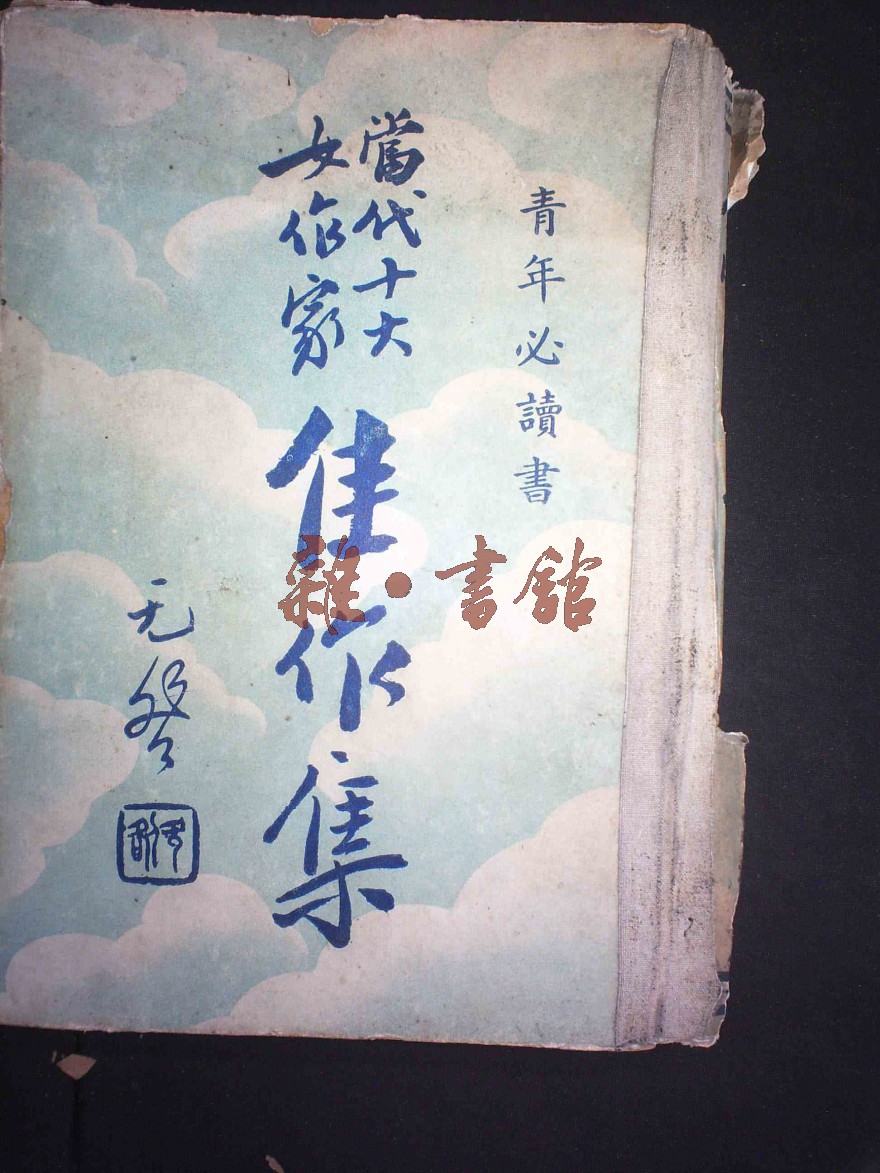 青年必讀書
當代十大
女作家
佳作集
无咎
雜·書館